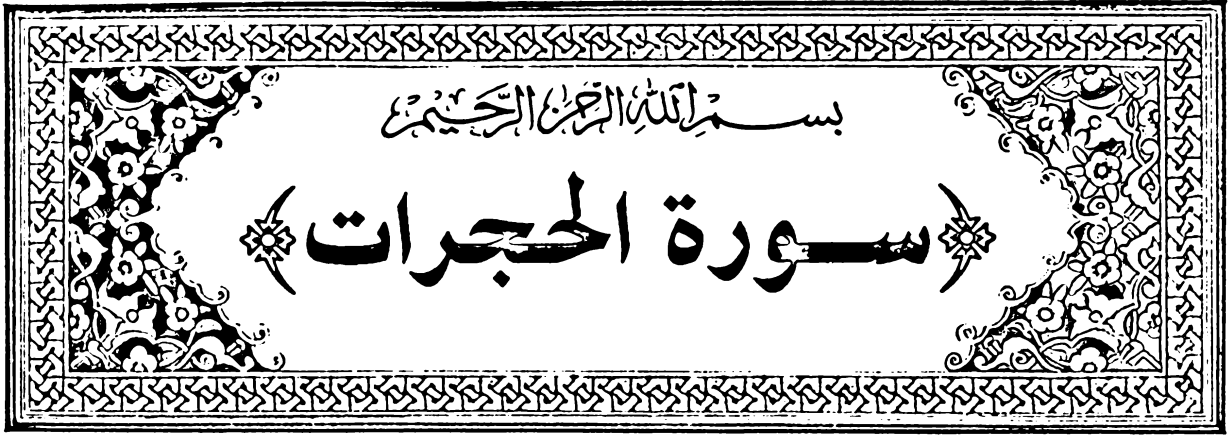 بسم الله الرحمن الرحيم
﴿سورة الحجرات﴾